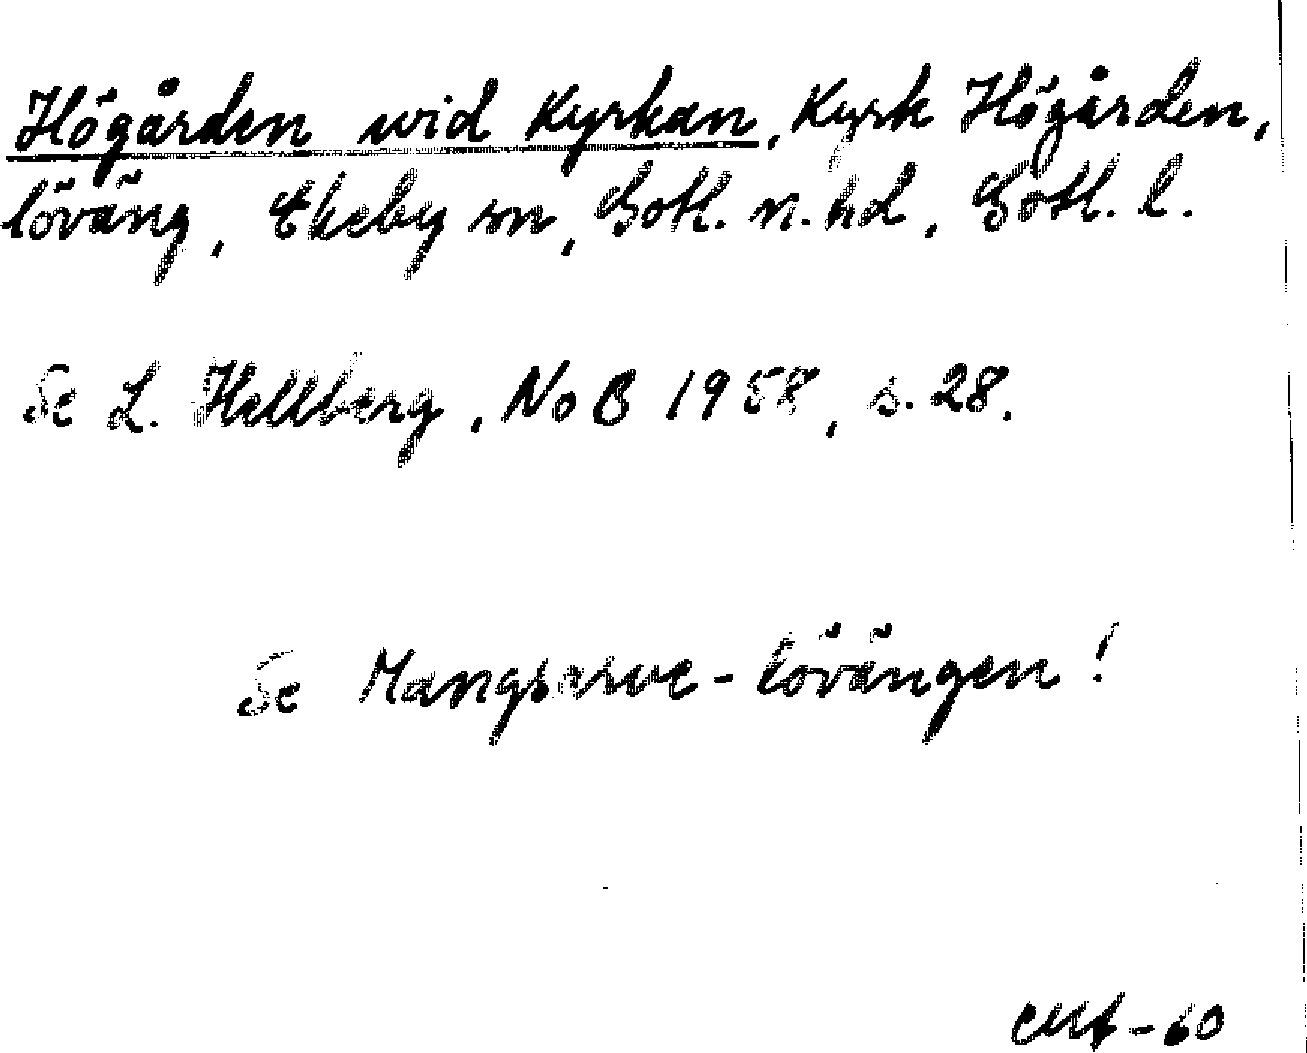 Högården wid Kyrkan, Kyrk Högården,
löväng, Ekeby sn, Gotl. n. hd, Gotl. l.
Se L. Hellberg, NoB 1958, s. 28.
Se Mangsarve-lövängen!
-60